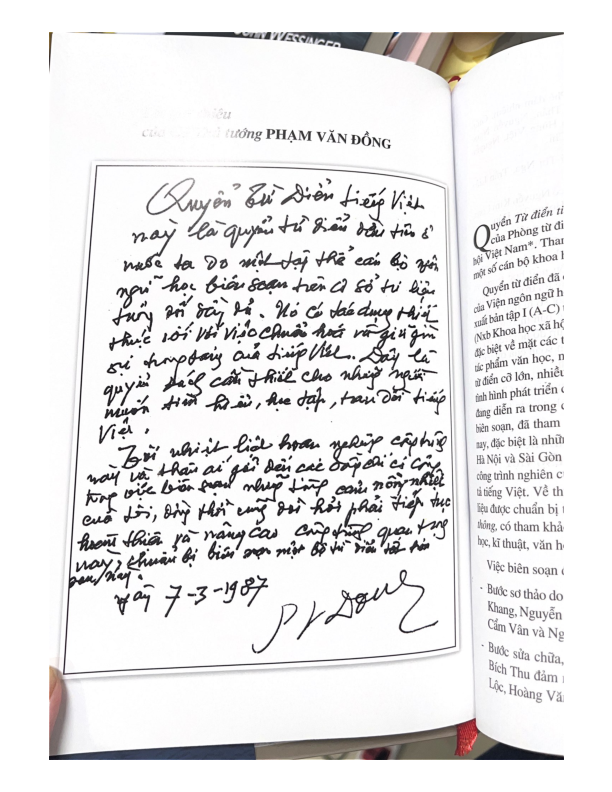 JOHN WESSINGER
của tướng PHẠM VĂN ĐỒNG
Quyển Từ Điển tiếng Việt
này là quyển từ điển đầu tiên ở
nước ta do một tập thể cán bộ ngôn
ngữ học biên soạn trên cơ sở tư liệu
tương đối đầy đủ. Nó có tác dụng thiết
thực đối với việc chuẩn hoá và giữ gìn
sự trong sáng của tiếng Việt. Đây là
quyển sách cần thiết cho những người
muốn tìm hiểu, học tập, trau dồi tiếng
Việt.
Tôi nhiệt liệt hoan nghênh công trình
này và thân ái gửi đến các đồng chí có công
trong việc biên soạn những tình cảm nồng nhiệt
của tôi, đồng thời cũng đòi hỏi phải tiếp tục
hoàn thiện và nâng cao công trình quan trọng
này, chuẩn bị biên soạn một bộ từ điển
sau này.
ngày 7-3-1987
PVDong
Quyển Từ điển ti
của Phòng từ đi
hội Việt Nam*. Tham
một số cán bộ khoa h
Quyển từ điển đã
của Viện ngôn ngữ h
xuất bản tập I (A-C)
(Nxb Khoa học xã hộ
đặc biệt về mặt các t
tác phẩm văn học, n
từ điển cỡ lớn, nhiều
tình hình phát triển c
đang diễn ra trong c
biên soạn, đã tham
nay, đặc biệt là nhữn
Hà Nội và Sài Gòn
công trình nghiên cứ
tả tiếng Việt. Về th
liệu được chuẩn bị t
thống, có tham khảo
học, kĩ thuật, văn h
Việc biên soạn c
- Bước sơ thảo do
Khang, Nguyễn
Cẩm Vân và Ng
- Bước sửa chữa,
Bích Thu đảm n
Lộc, Hoàng Vă